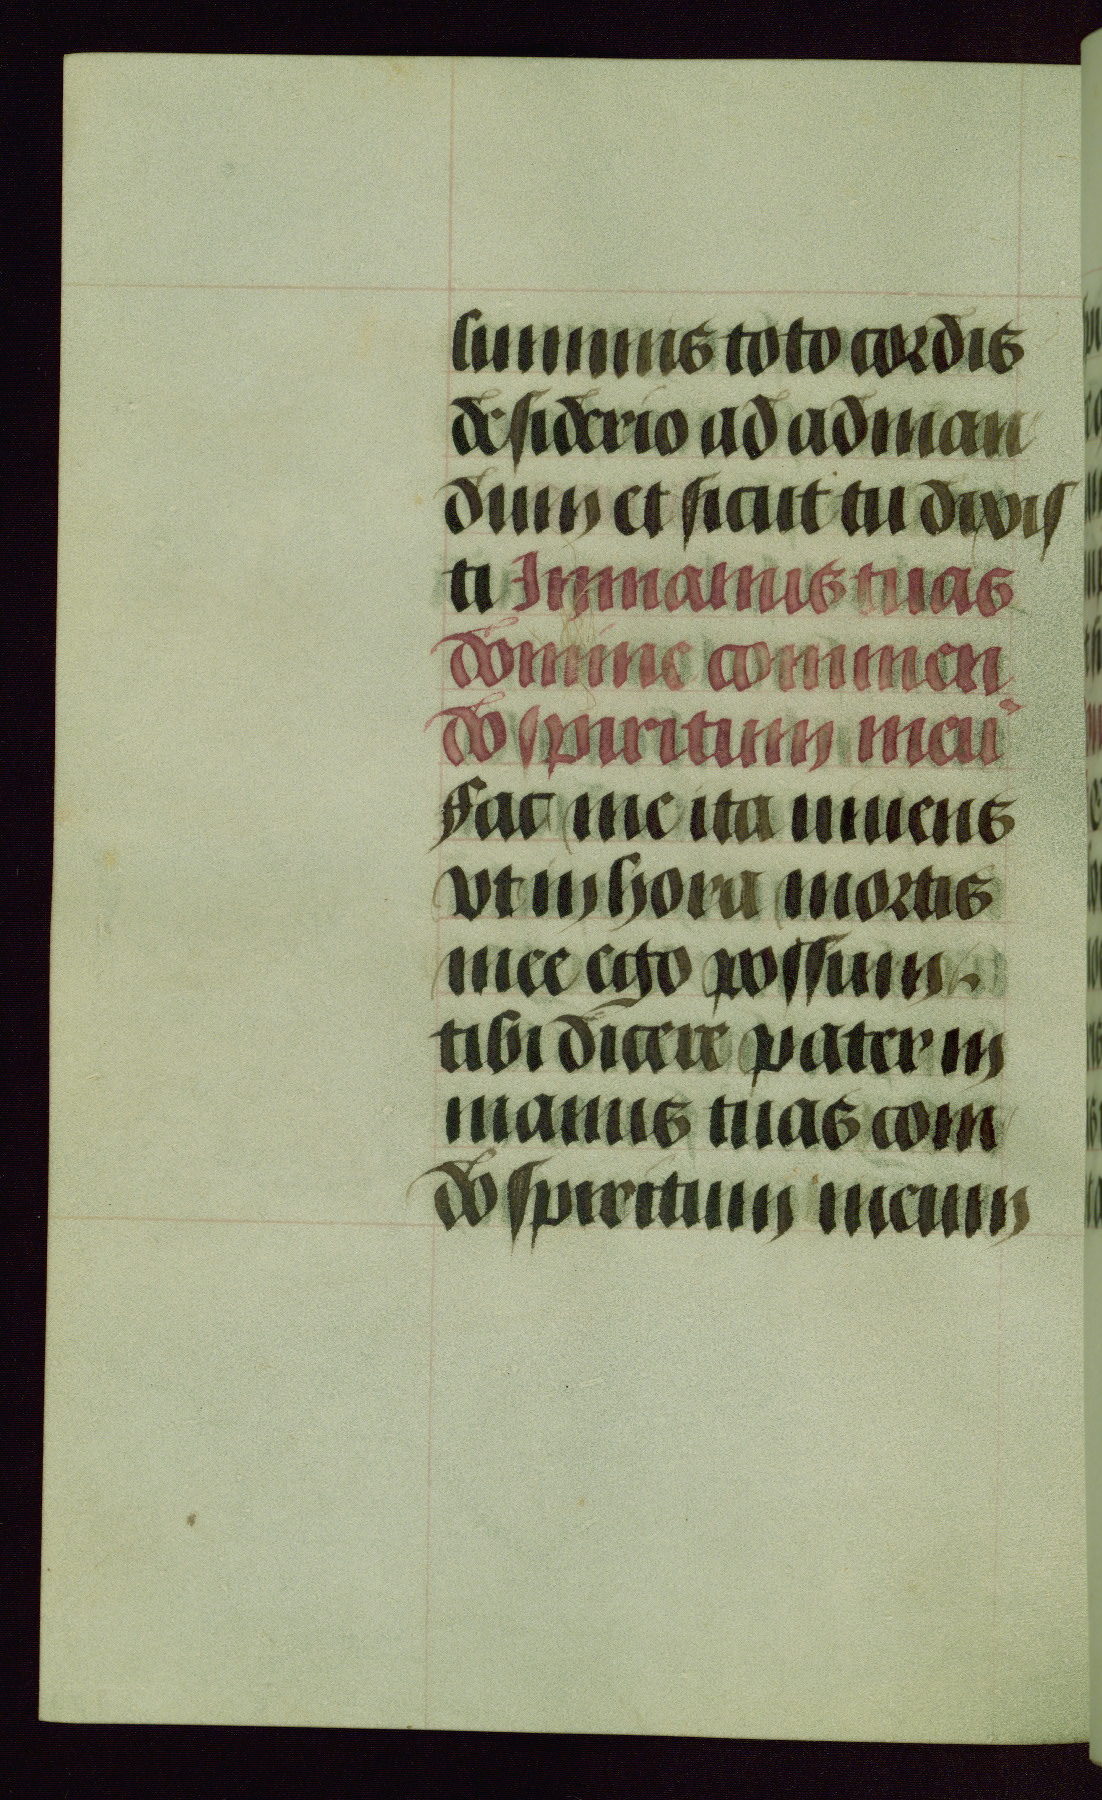 sumimus toto cordis
desiderio ad ad man
dum et sicut tu dixis
ti In manus tuas
domine commen
do spiritum meū
fac me ita uiuens
vt in hora mortis
mee ego possum
tibi dicere pater in
manus tuas com
do spiritum meum